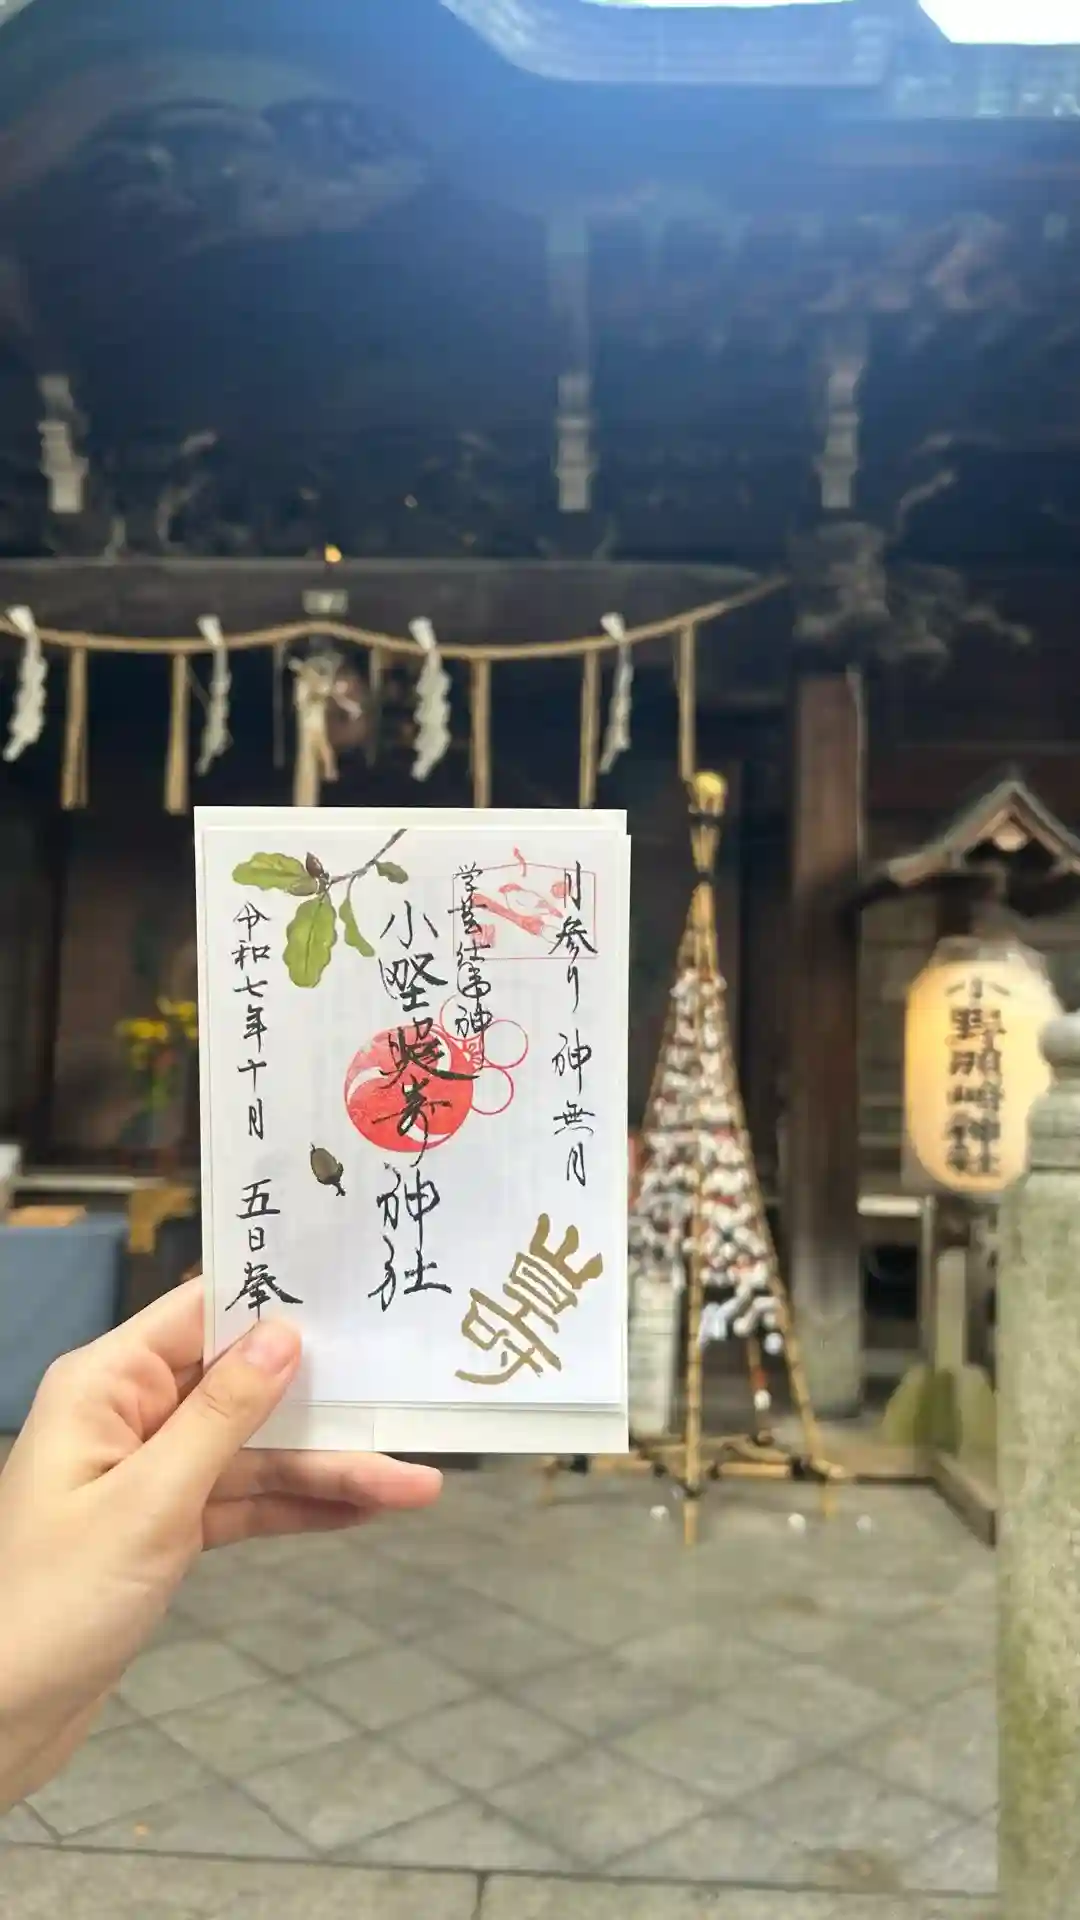 月参り 神無月
学芸仕事神
小野照崎神社
令和七年十月 五日 奉
小野照崎神社